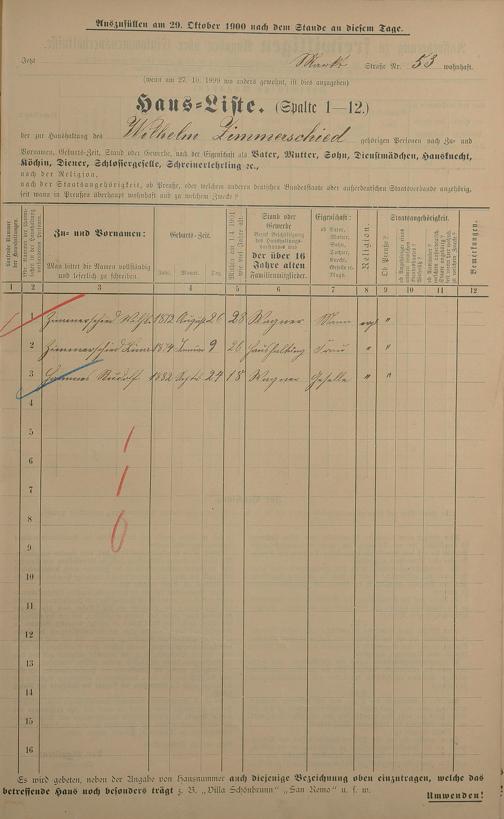 Auszufüllen am 29. Oktober 1900 nach dem Stande an diesem Tage.
Jetzt Markt Straße Nr. 53 wohnhaft.
(wenn am 27. 10. 1899 wo anders gewohnt, ist dies anzugeben)
Haus-Liste. (Spalte 1—12.)
der zur Haushaltung des Wilhelm Zimmerschied gehörigen Personen nach Zu- und
Vornamen, Geburts-Zeit, Stand oder Gewerbe, nach der Eigenschaft als Vater, Mutter, Sohn, Dienstmädchen, Hausknecht,
Köchin, Diener, Schlossergeselle, Schreinerlehrling ec.,
nach der Religion,
nach der Staatsangehörigkeit, ob Preuße, oder welchem anderen deutschen Bundesstaate oder außerdeutschen Staatsverbande angehörig,
seit wann in Preußen überhaupt wohnhaft und zu welchem Zwecke?
Zu- und Vornamen:
Man bittet die Namen vollständig
und leserlich zu schreiben.
Geburts-Zeit.
Jahr. Monat. Tag.
Stand oder
Gewerbe
der über 16
Jahre alten
Familienmitglieder.
Eigenschaft:
ob Vater,
Mutter,
Sohn,
Tochter,
Knecht,
Geselle u.
Magd.
Religion.
Ob Preuße?
Staatsangehörigkeit.
Bemerkungen.
1 2 3 4 5 6 7 8 9 10 11 12
1 Zimmerschied Wilh. 1872 August 26 28 Wagner Mann evgl "
2 Zimmerschied 1874 9 26 Haushaltung Frau " "
3 Rudolf 1882 Sept. 24 18 Wagner Geselle " "
4
5
6
7
8
9
10
11
12
13
14
15
16
1
1
0
Es wird gebeten, neben der Angabe von Hausnummer auch diejenige Bezeichnung oben einzutragen, welche das
betreffende Haus noch besonders trägt z. B. „Villa Schönbrunn" „San Remo" u. s. w.
Umwenden!